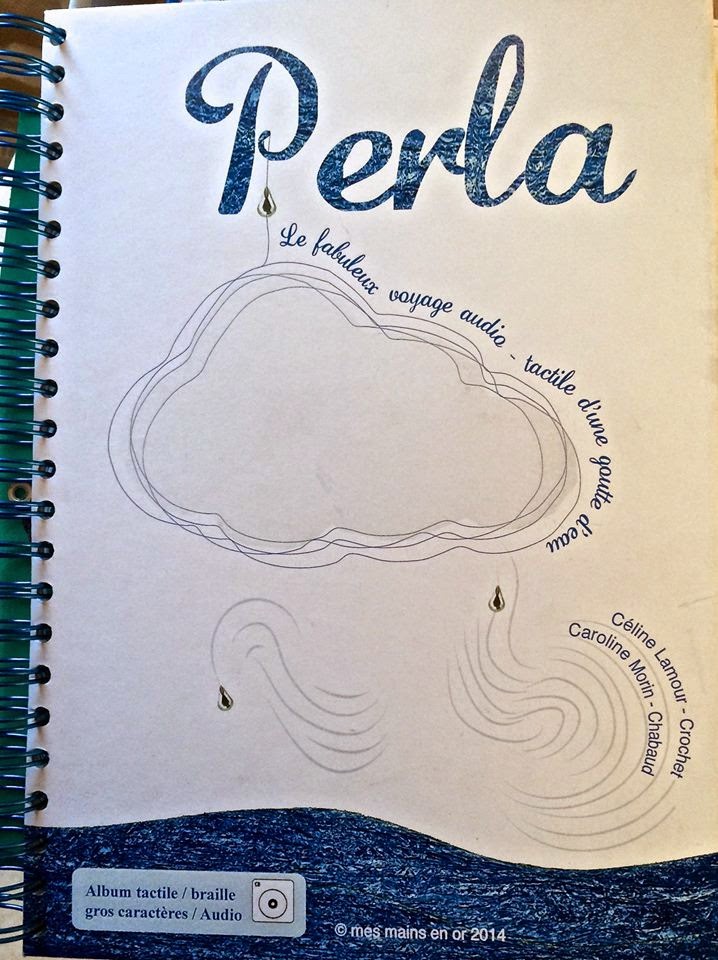 Perla
Le fabuleux voyage audio - tactile d'une goutte d'eau
Céline Lamour - Crochet
Caroline Morin - Chabaud
Album tactile / braille
gros caractères / Audio
© mes mains en or 2014